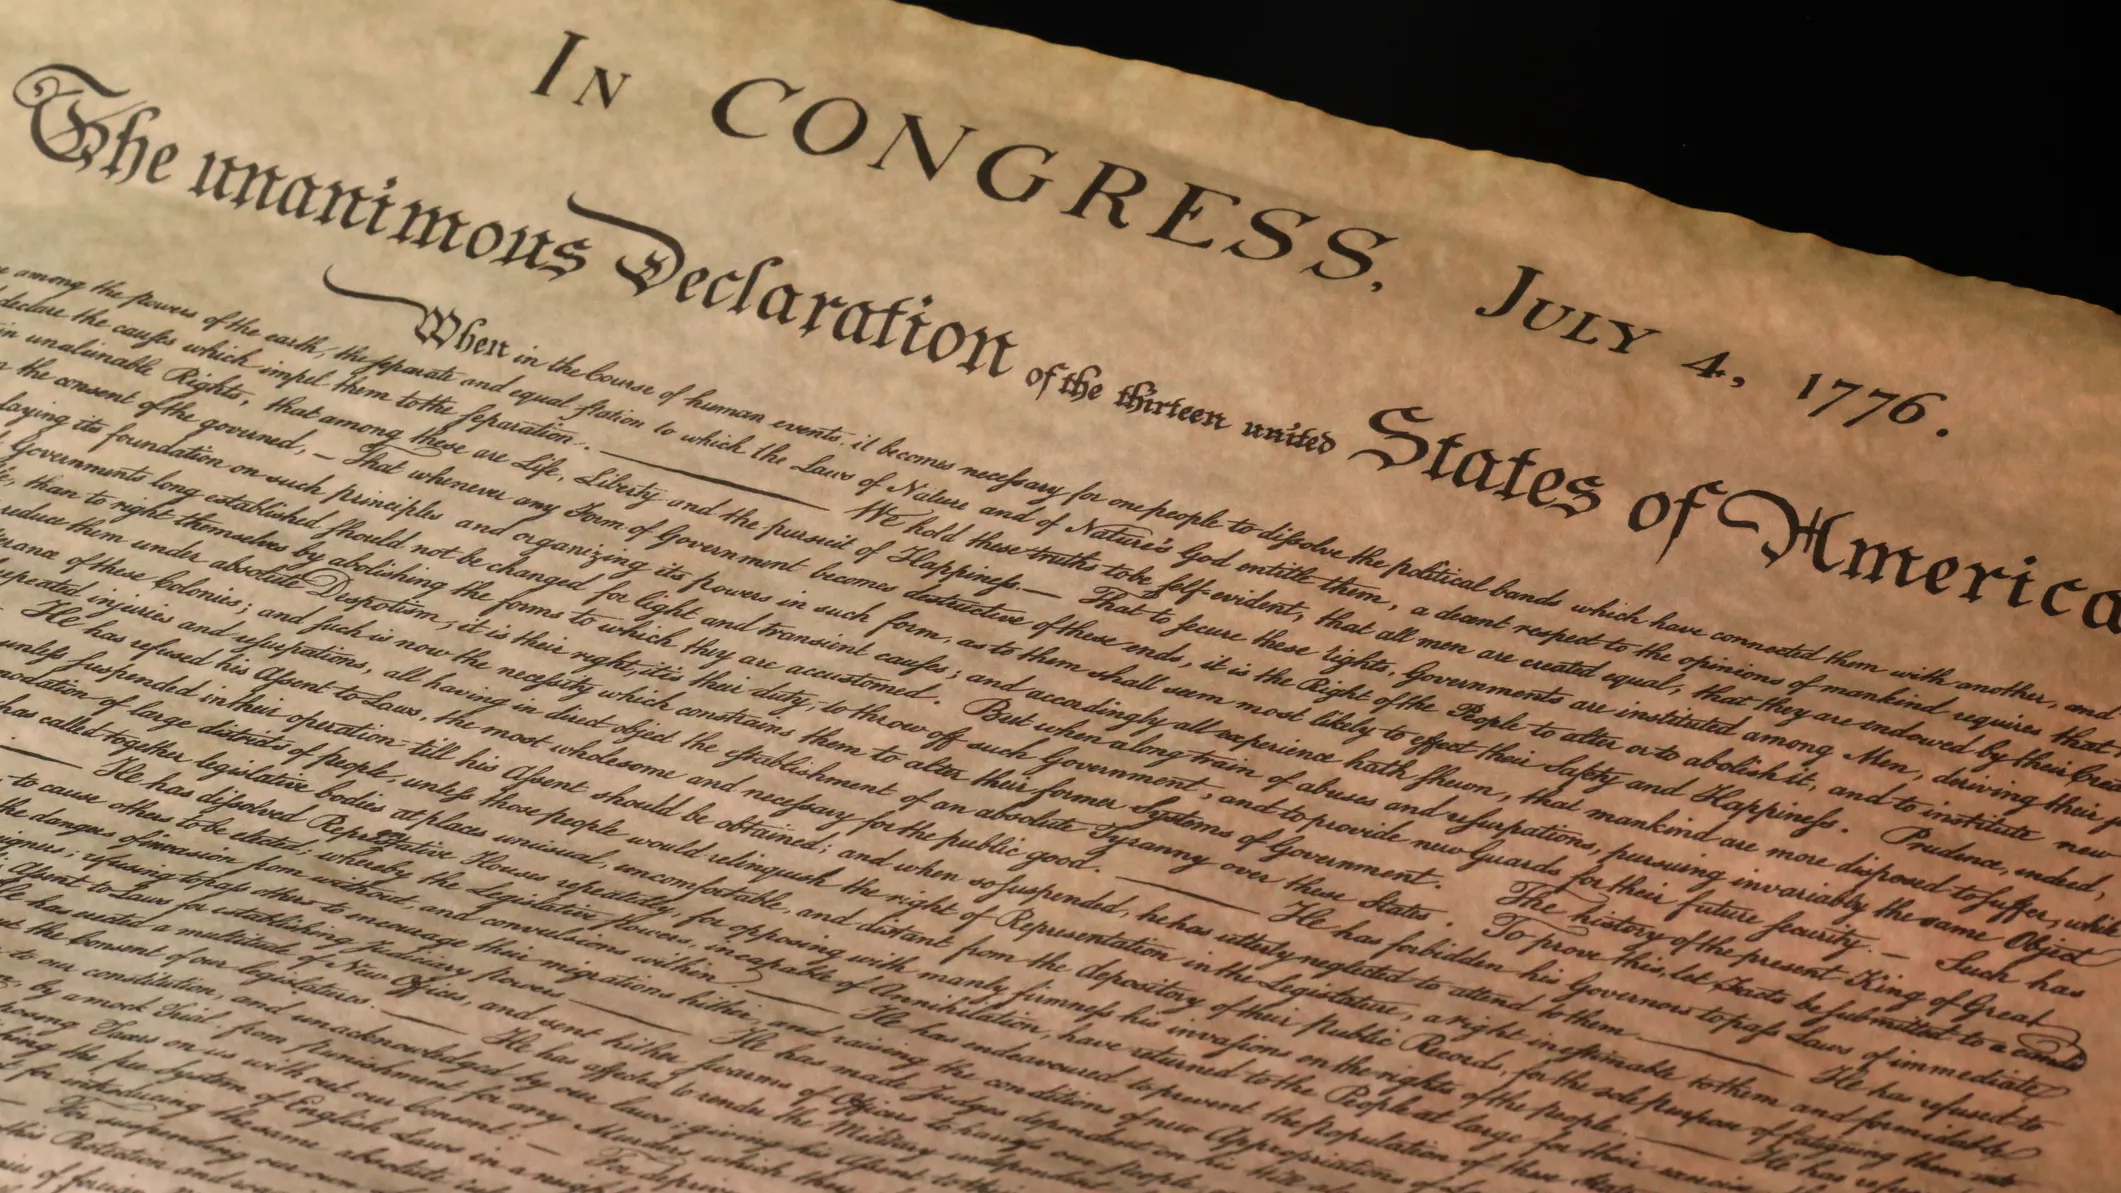 IN CONGRESS, JULY 4, 1776.
The unanimous Declaration of the thirteen united States of America
When in the Course of human events, it becomes necessary for one people to dissolve the political bands which have connected them with another, and
among the powers of the earth, the separate and equal station to which the Laws of Nature and of Nature's God entitle them, a decent respect to the opinions of mankind requires that
declare the causes which impel them to the separation. — We hold these truths to be self-evident, that all men are created equal, that they are endowed by their Crea
unalienable Rights, that among these are Life, Liberty and the pursuit of Happiness. — That to secure these rights, Governments are instituted among Men, deriving their
the consent of the governed, — That whenever any Form of Government becomes destructive of these ends, it is the Right of the People to alter or to abolish it, and to institute new
laying its foundation on such principles and organizing its powers in such form, as to them shall seem most likely to effect their Safety and Happiness. Prudence, indeed,
Governments long established should not be changed for light and transient causes; and accordingly all experience hath shewn, that mankind are more disposed to suffer, while
than to right themselves by abolishing the forms to which they are accustomed. But when a long train of abuses and usurpations, pursuing invariably the same Object
reduce them under absolute Despotism, it is their right, it is their duty, to throw off such Government, and to provide new Guards for their future security. — Such has
of these Colonies; and such is now the necessity which constrains them to alter their former Systems of Government. The history of the present King of Great
repeated injuries and usurpations, all having in direct object the establishment of an absolute Tyranny over these States. To prove this, let Facts be submitted to a candid
He has refused his Assent to Laws, the most wholesome and necessary for the public good. — He has forbidden his Governors to pass Laws of immediate
unless suspended in their operation till his Assent should be obtained; and when so suspended, he has utterly neglected to attend to them. — He has refused to
of large districts of people, unless those people would relinquish the right of Representation in the Legislature, a right inestimable to them and formidable
has called together legislative bodies at places unusual, uncomfortable, and distant from the depository of their public Records, for the sole purpose of fatiguing them into
— He has dissolved Representative Houses repeatedly, for opposing with manly firmness his invasions on the rights of the people. — He has refus
to cause others to be elected; whereby the Legislative powers, incapable of Annihilation, have returned to the People at large for their exercise
the dangers of invasion from without, and convulsions within. — He has endeavoured to prevent the population of these States
refusing to pass others to encourage their migrations hither, and raising the conditions of new Appropriations of
Assent to Laws for establishing Judiciary powers. — He has made Judges dependent on his Will
has erected a multitude of New Offices, and sent hither swarms of Officers to harrass our people
the Consent of our legislatures. — He has affected to render the Military independent
to our constitution, and unacknowledged by our laws; giving his Assent to
by a mock Trial, from punishment for any Murders which they
Taxes on us without our Consent: — For depriv
the free System of English Laws in a neigh
for introducing the same absolute
For suspending our own